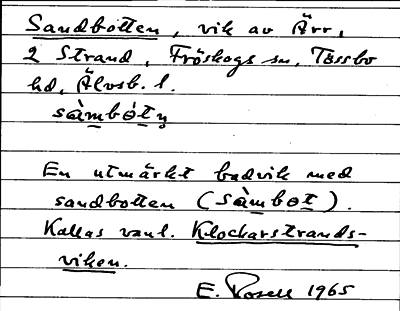 Sandbotten, vik av Ärr,
2 Strand, Fröskogs sn, Tössbo
hd, Älvsb. l.
sàmbótn̥
En utmärkt badvik med
sandbotten (sàmbot).
Kallas vanl. Klockarstrands-
viken.
E. Rosell 1965